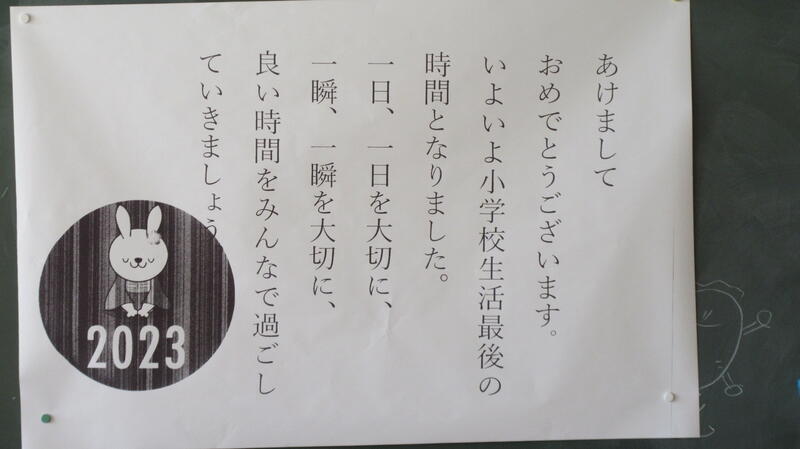 あけまして
おめでとうございます。
いよいよ小学校生活最後の
時間となりました。
一日、一日を大切に、
一瞬、一瞬を大切に、
良い時間をみんなで過ごし
ていきましょう
2023